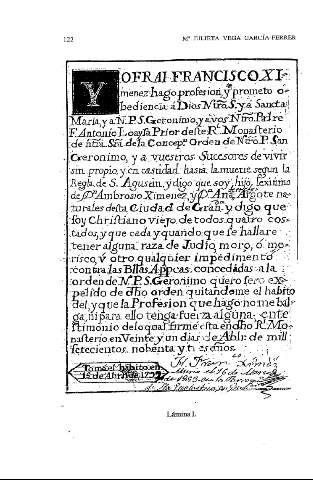 122
Mª JULIETA VEGA GARCÍA-FERRER
YO FRAI FRANCISCO XI-
menez hago profesion, y prometo o-
bediencia á Dios Ntrô S. y a Sancta
Maria, y a N. P. S. Geronimo, y a vos Ntrô Padre
F. Antonio Loaysa Prior deste Rˡ Monasterio
de ntra. Srã. de la Concepⁿ Orden de Ntrô P. San
Geronimo, y a vuestros Sucesores de vivir
sin propio, y en castidad hasta la muerte segun la
Regla de S. Agustin, y digo que soy hijo lexitimo
de Dⁿ Ambrosio Ximenez y Dª Ana Argote na-
turales desta Ciudad de Gran. y digo que
soy Christiano viejo de todos quatro cos-
tados, y que cada y quando que se hallare
tener alguna raza de Judio, moro, ó mo-
risco, y otro qualquier impedimento
contra las Bullas Appcas. concedidas a la
orden de N. P. S. Geronimo quiero ser ex-
pelido de dho orden quitandome el habito
del, y que la Profesion que hago no me bal-
ga, ni para ello tenga fuerza alguna, en te-
stimonio de lo qual firme esta en dho Rˡ Mo-
nasterio en Veinte y un dias de Abril de mill
setecientos nobenta y tres años
Tomo el habito en
de Abril de 1792
Fr. Fran.co Ximez
Murio el 16 de
de 1853 en la
Lámina I.